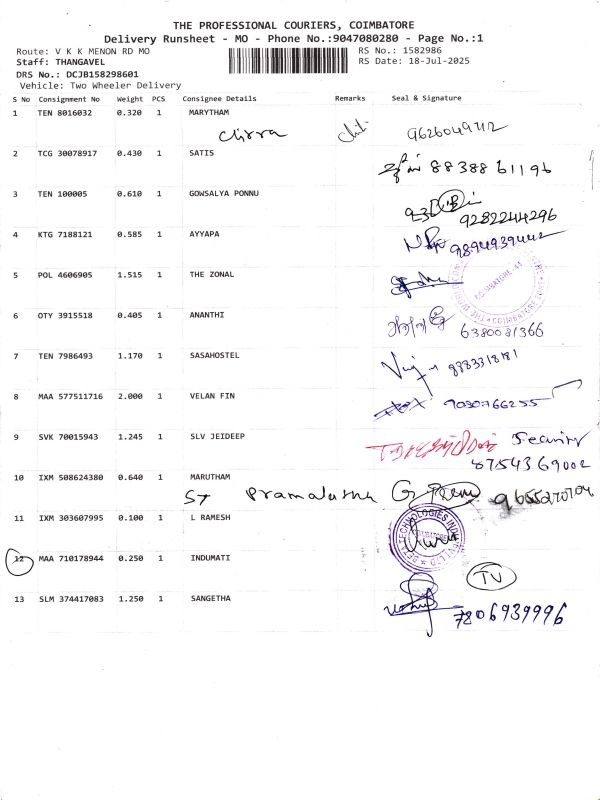 THE PROFESSIONAL COURIERS, COIMBATORE
Delivery Runsheet - MO - Phone No.:9047080280 - Page No.:1
Route: V K K MENON RD MO
RS No.: 1582986
Staff: THANGAVEL
RS Date: 18-Jul-2025
DRS No.: DCJB158298601
Vehicle: Two Wheeler Delivery
S No Consignment No Weight PCS Consignee Details Remarks Seal & Signature
1 TEN 8016032 0.320 1 MARYTHAM
2 TCG 30078917 0.430 1 SATIS
88388 61196
3 TEN 100005 0.610 1 GOWSALYA PONNU
9282244296
4 KTG 7188121 0.585 1 AYYAPA
5 POL 4606905 1.515 1 THE ZONAL
COIMBATORE
6 OTY 3915518 0.405 1 ANANTHI
6380081366
7 TEN 7986493 1.170 1 SASAHOSTEL
8 MAA 577511716 2.000 1 VELAN FIN
9030766255
9 SVK 70015943 1.245 1 SLV JEIDEEP
Security
8754369002
10 IXM 508624380 0.640 1 MARUTHAM
ST Pramalatha G
11 IXM 303607995 0.100 1 L RAMESH
12 MAA 710178944 0.250 1 INDUMATI
TV
13 SLM 374417083 1.250 1 SANGETHA
7806939996